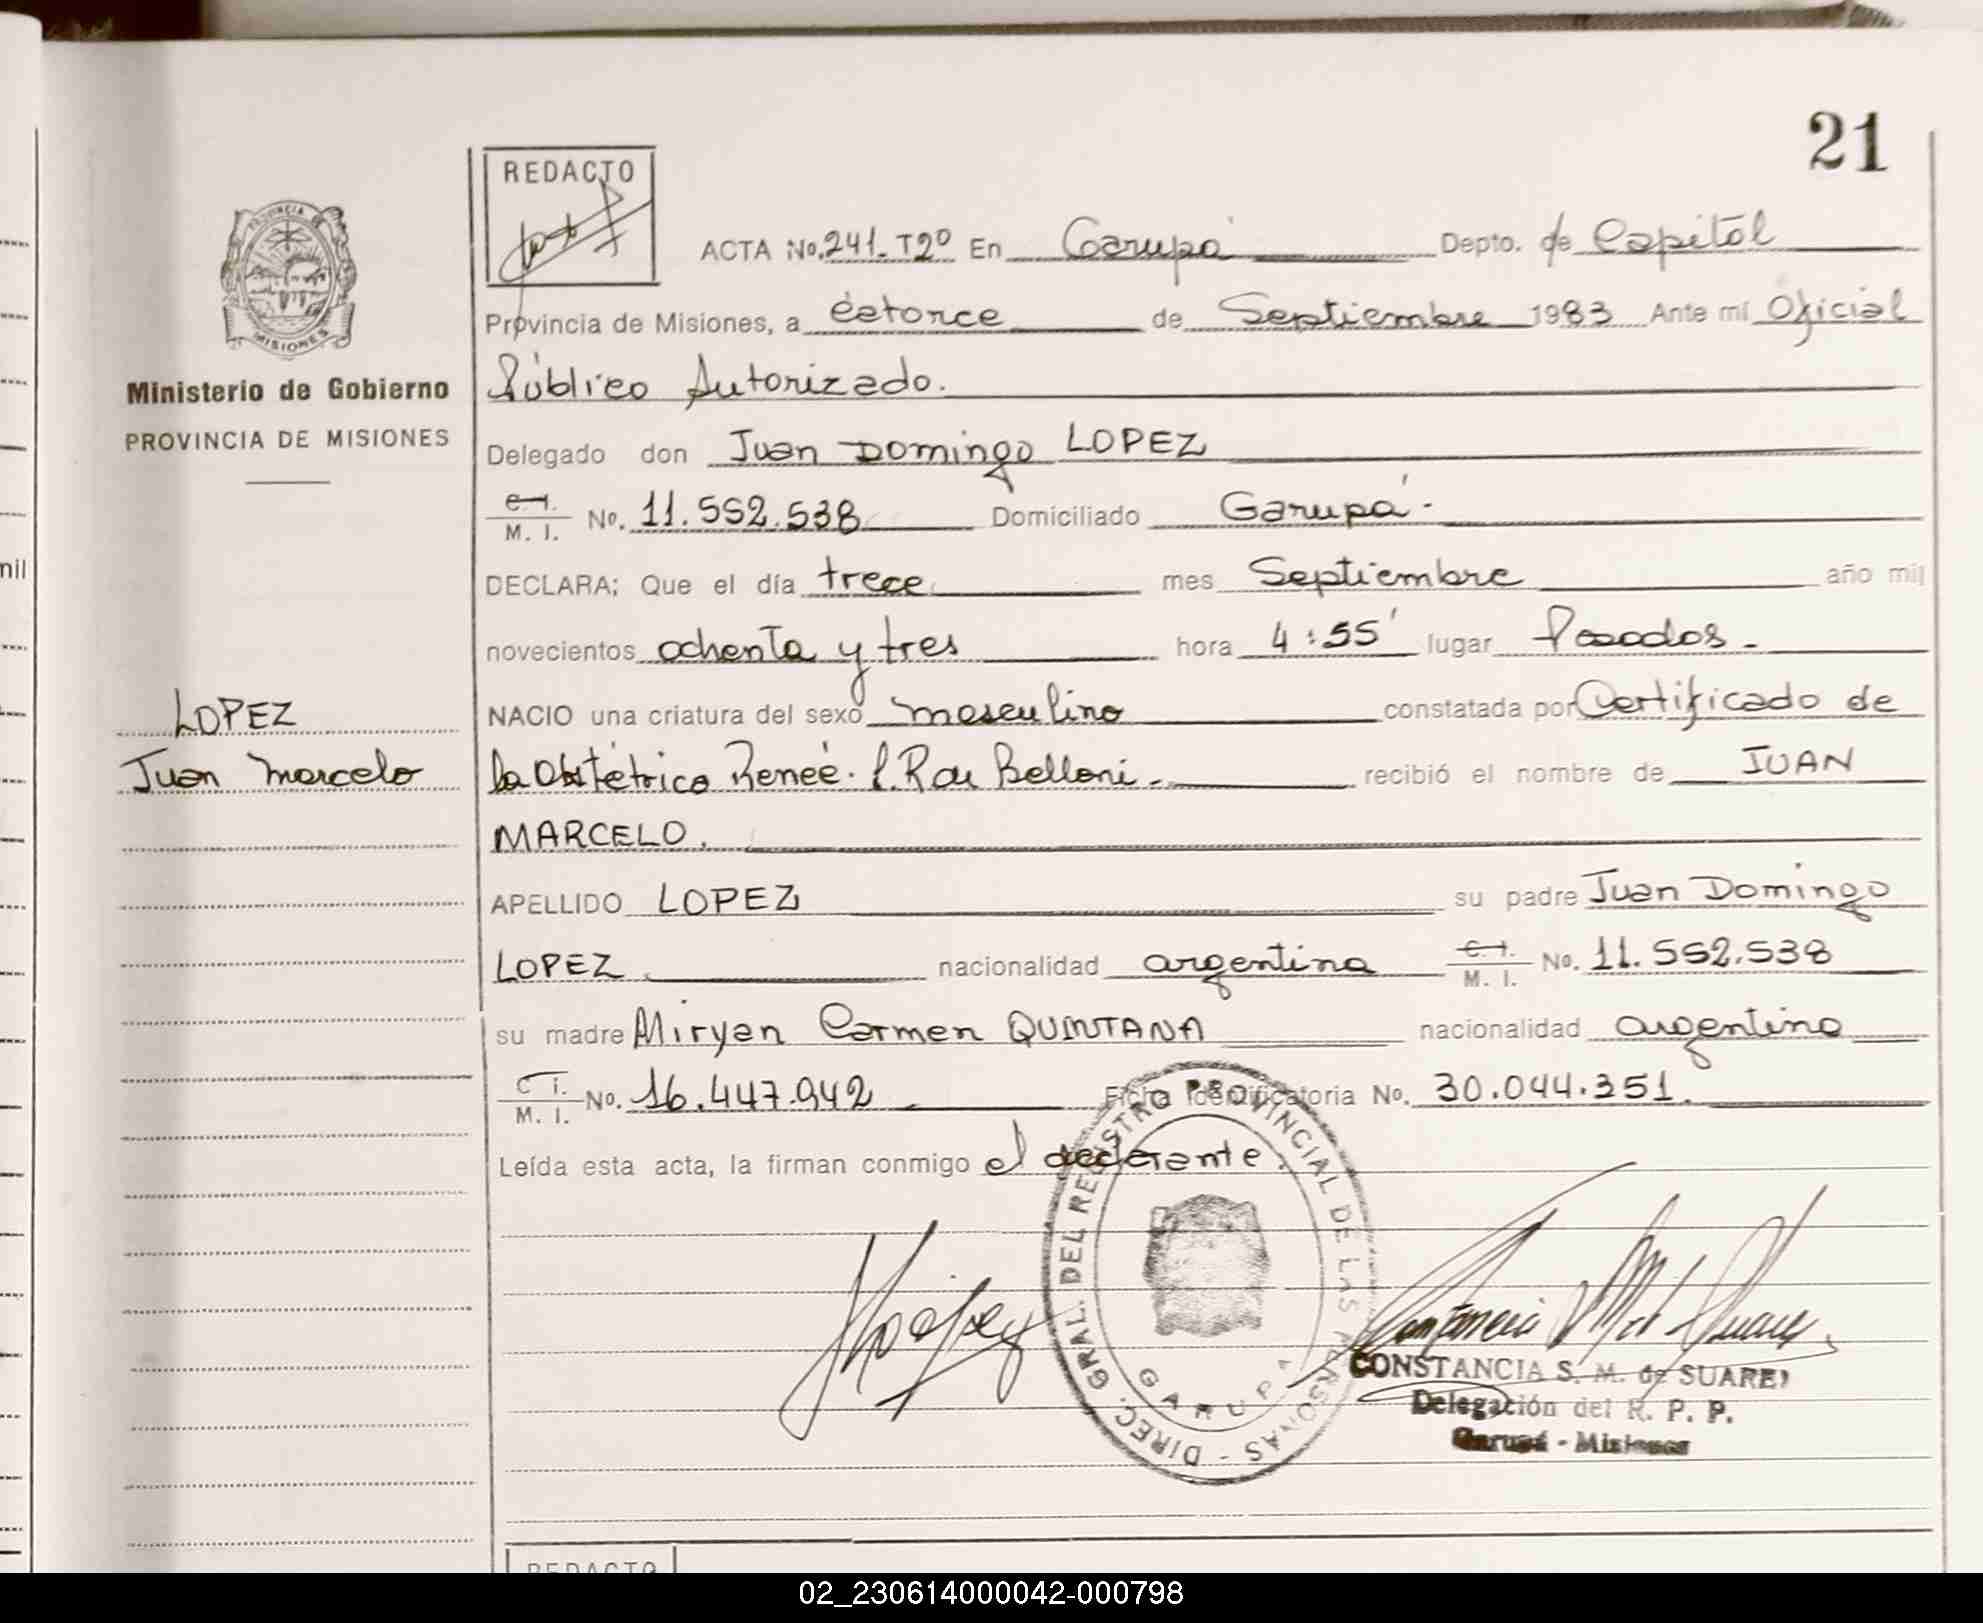 21
REDACTO
ACTA No. 241. T2º En Garupá Depto. de Capital
Provincia de Misiones, a catorce de Septiembre 1983 Ante mí Oficial
Ministerio de Gobierno
PROVINCIA DE MISIONES
Público Autorizado.
Delegado don Juan Domingo LOPEZ
C. I.
M. I. No. 11.552.538 Domiciliado Garupá.-
DECLARA; Que el día trece mes Septiembre año mil
novecientos ochenta y tres hora 4:55' lugar Posadas.-
LOPEZ
Juan Marcelo
NACIO una criatura del sexo masculino constatada por Certificado de
la Obstétrica Reneé. Belloni.- recibió el nombre de JUAN
MARCELO.
APELLIDO LOPEZ su padre Juan Domingo
LOPEZ. nacionalidad argentina C. I.
M. I. No. 11.552.538
su madre Miryan Carmen QUINTANA nacionalidad argentina
C. I.
M. I. No. 16.447.942 Ficha Identificatoria No. 30.044.351.
Leída esta acta, la firman conmigo el declarante.
DIREC. GRAL. DEL REGISTRO PROVINCIAL DE LAS PERSONAS -
GARUPA
CONSTANCIA S. M. de SUAREZ
Delegación del R. P. P.
Garupá - Misiones
REDACTO
nil
02_230614000042-000798